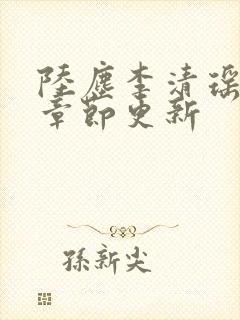 陸塵李清瑤
章節更新
孫新尖